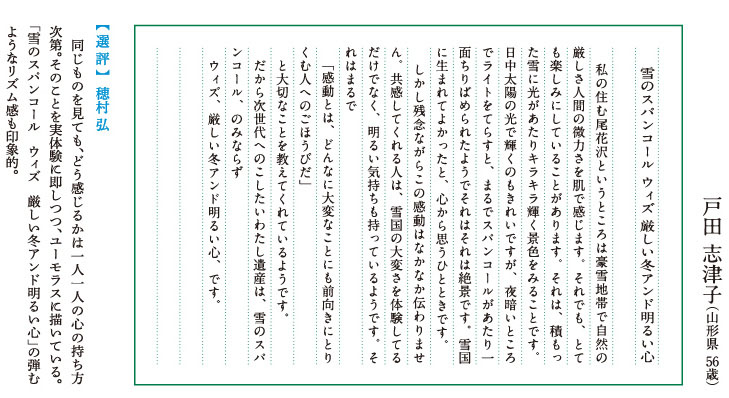 戸田 志津子（山形県 56歳）
雪のスパンコール ウィズ 厳しい冬アンド明るい心
私の住む尾花沢というところは豪雪地帯で自然の
厳しさ人間の微力さを肌で感じます。それでも、とて
も楽しみにしていることがあります。それは、積もっ
た雪に光があたりキラキラ輝く景色をみることです。
日中太陽の光で輝くのもきれいですが、夜暗いところ
でライトをてらすと、まるでスパンコールがあたり一
面ちりばめられたようでそれはそれは絶景です。雪国
に生まれてよかったと、心から思うひとときです。
しかし残念ながらこの感動はなかなか伝わりませ
ん。共感してくれる人は、雪国の大変さを体験してる
だけでなく、明るい気持ちも持っているようです。そ
れはまるで
「感動とは、どんなに大変なことにも前向きにとり
くむ人へのごほうびだ」
と大切なことを教えてくれているようです。
だから次世代へのこしたいわたし遺産は、雪のスパ
ンコール、のみならず
ウィズ、厳しい冬アンド明るい心、です。
【選評】 穂村 弘
同じものを見ても、どう感じるかは一人一人の心の持ち方
次第。そのことを実体験に即しつつ、ユーモラスに描いている。
「雪のスパンコール ウィズ 厳しい冬アンド明るい心」の弾む
ようなリズム感も印象的。